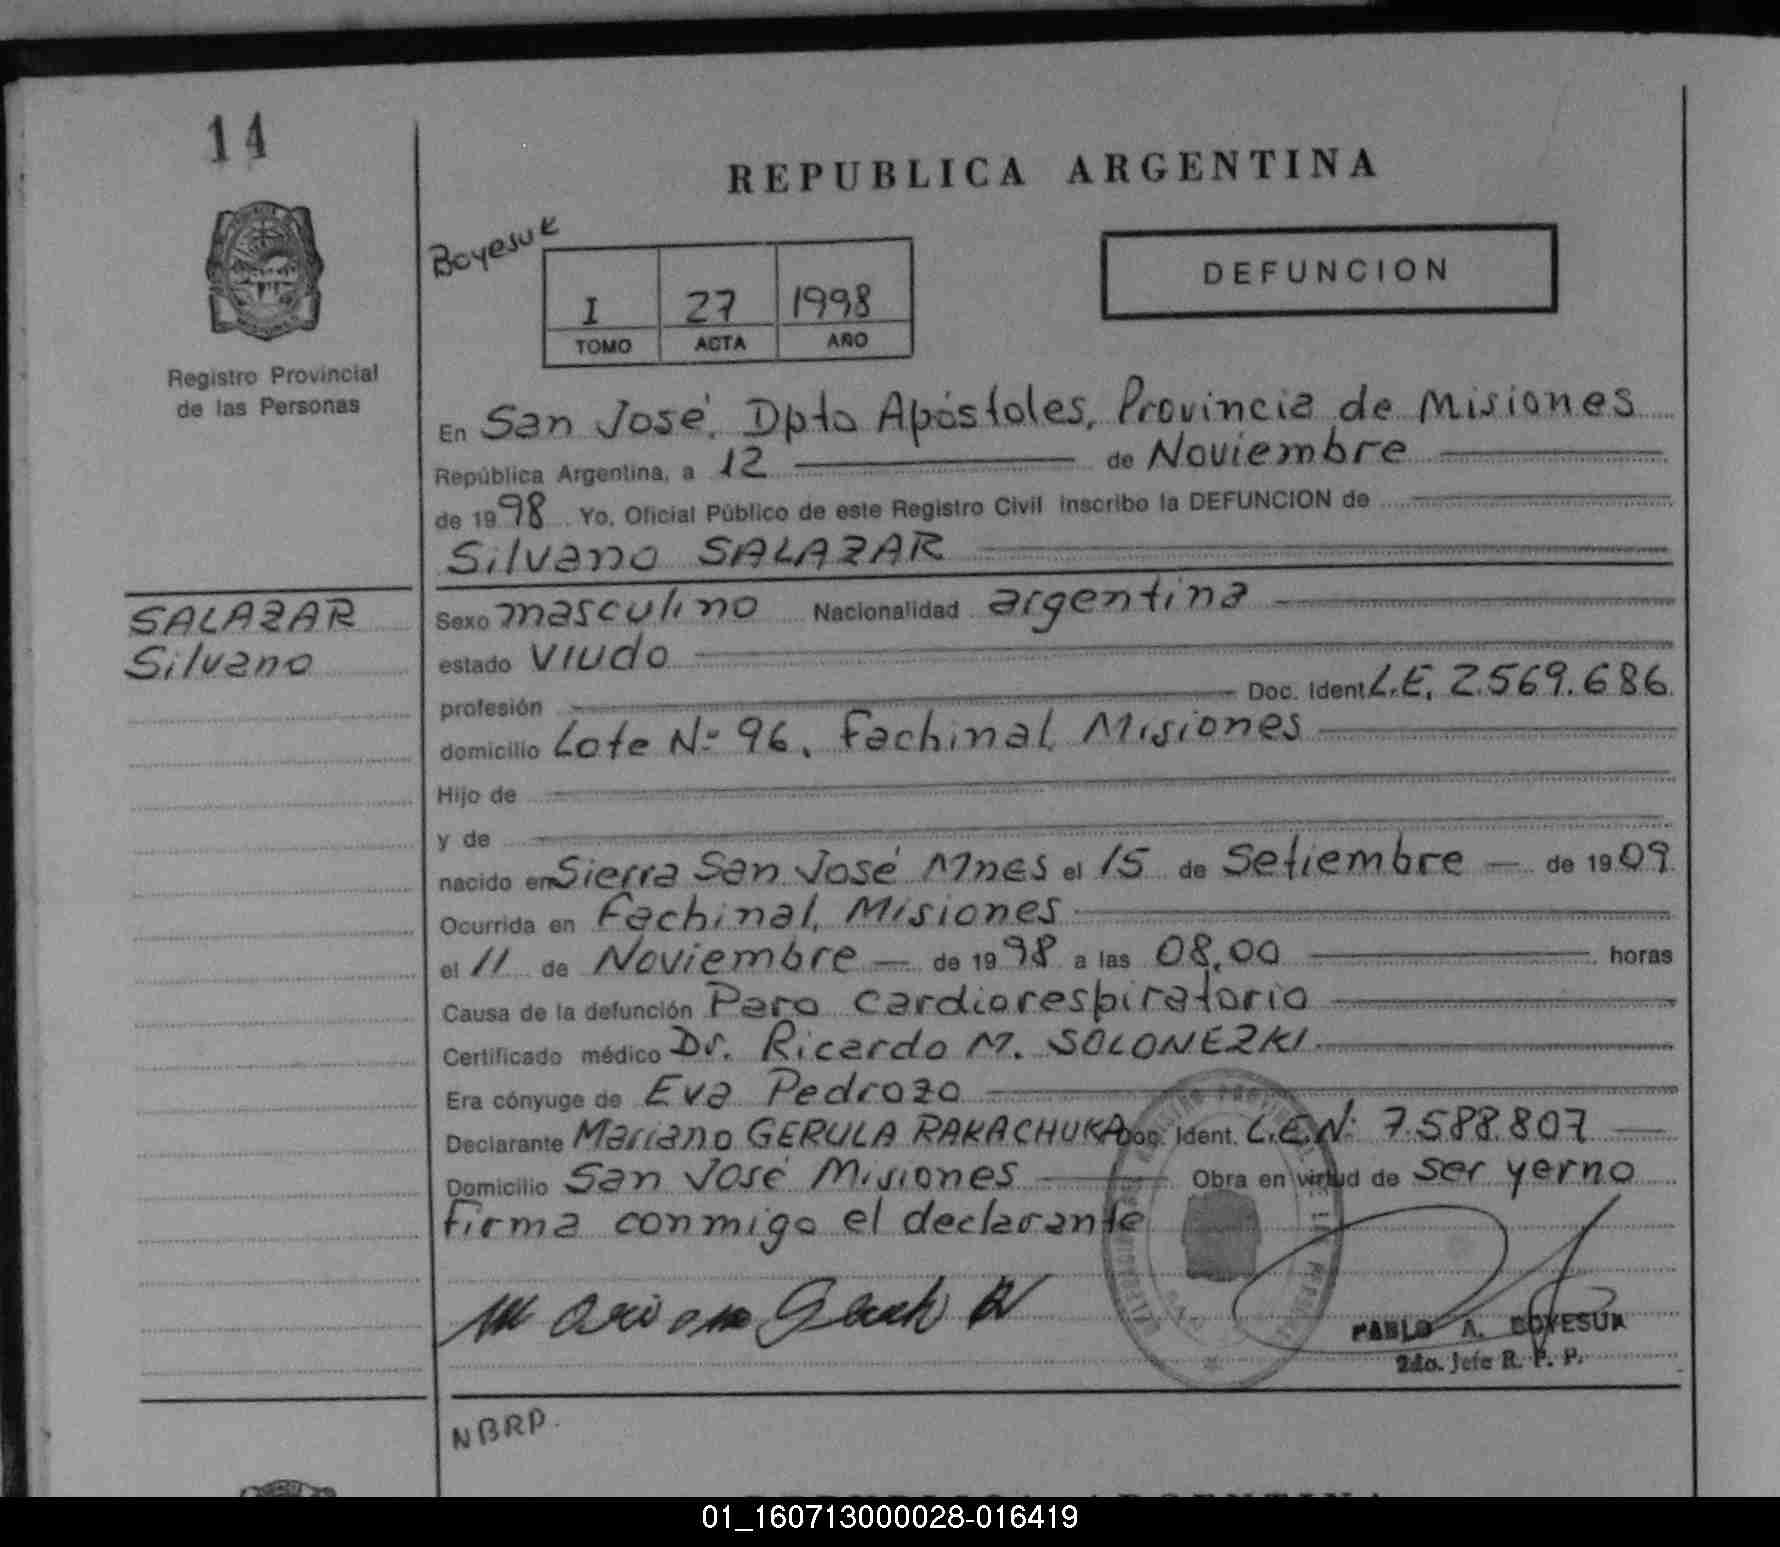 14
REPUBLICA ARGENTINA
Boyesuk
I 27 1998
TOMO ACTA AÑO
DEFUNCION
Registro Provincial
de las Personas
En San José, Dpto Apóstoles, Provincia de Misiones
República Argentina, a 12 de Noviembre
de 1998 Yo, Oficial Público de este Registro Civil inscribo la DEFUNCION de
Silvano SALAZAR
SALAZAR
Silvano
Sexo masculino Nacionalidad argentina
estado viudo
profesión Doc. Ident L.E. 2.569.686
domicilio Lote Nº 96, Fachinal Misiones
Hijo de
y de
nacido en Sierra San José Mnes el 15 de Setiembre de 1909
Ocurrida en Fachinal, Misiones
el 11 de Noviembre de 1998 a las 08,00 horas
Causa de la defunción Paro cardiorespiratorio
Certificado médico Dr. Ricardo M. SOLONEZKI
Era cónyuge de Eva Pedrozo
Declarante Mariano GERULA RAKACHUKA Doc. Ident. L.E.Nº 7.588.807
Domicilio San José Misiones Obra en virtud de ser yerno
firma conmigo el declarante
PABLO A. BOYESUK
2do. Jefe R. P. P.
NBRP.
REPUBLICA ARGENTINA
01_160713000028-016419